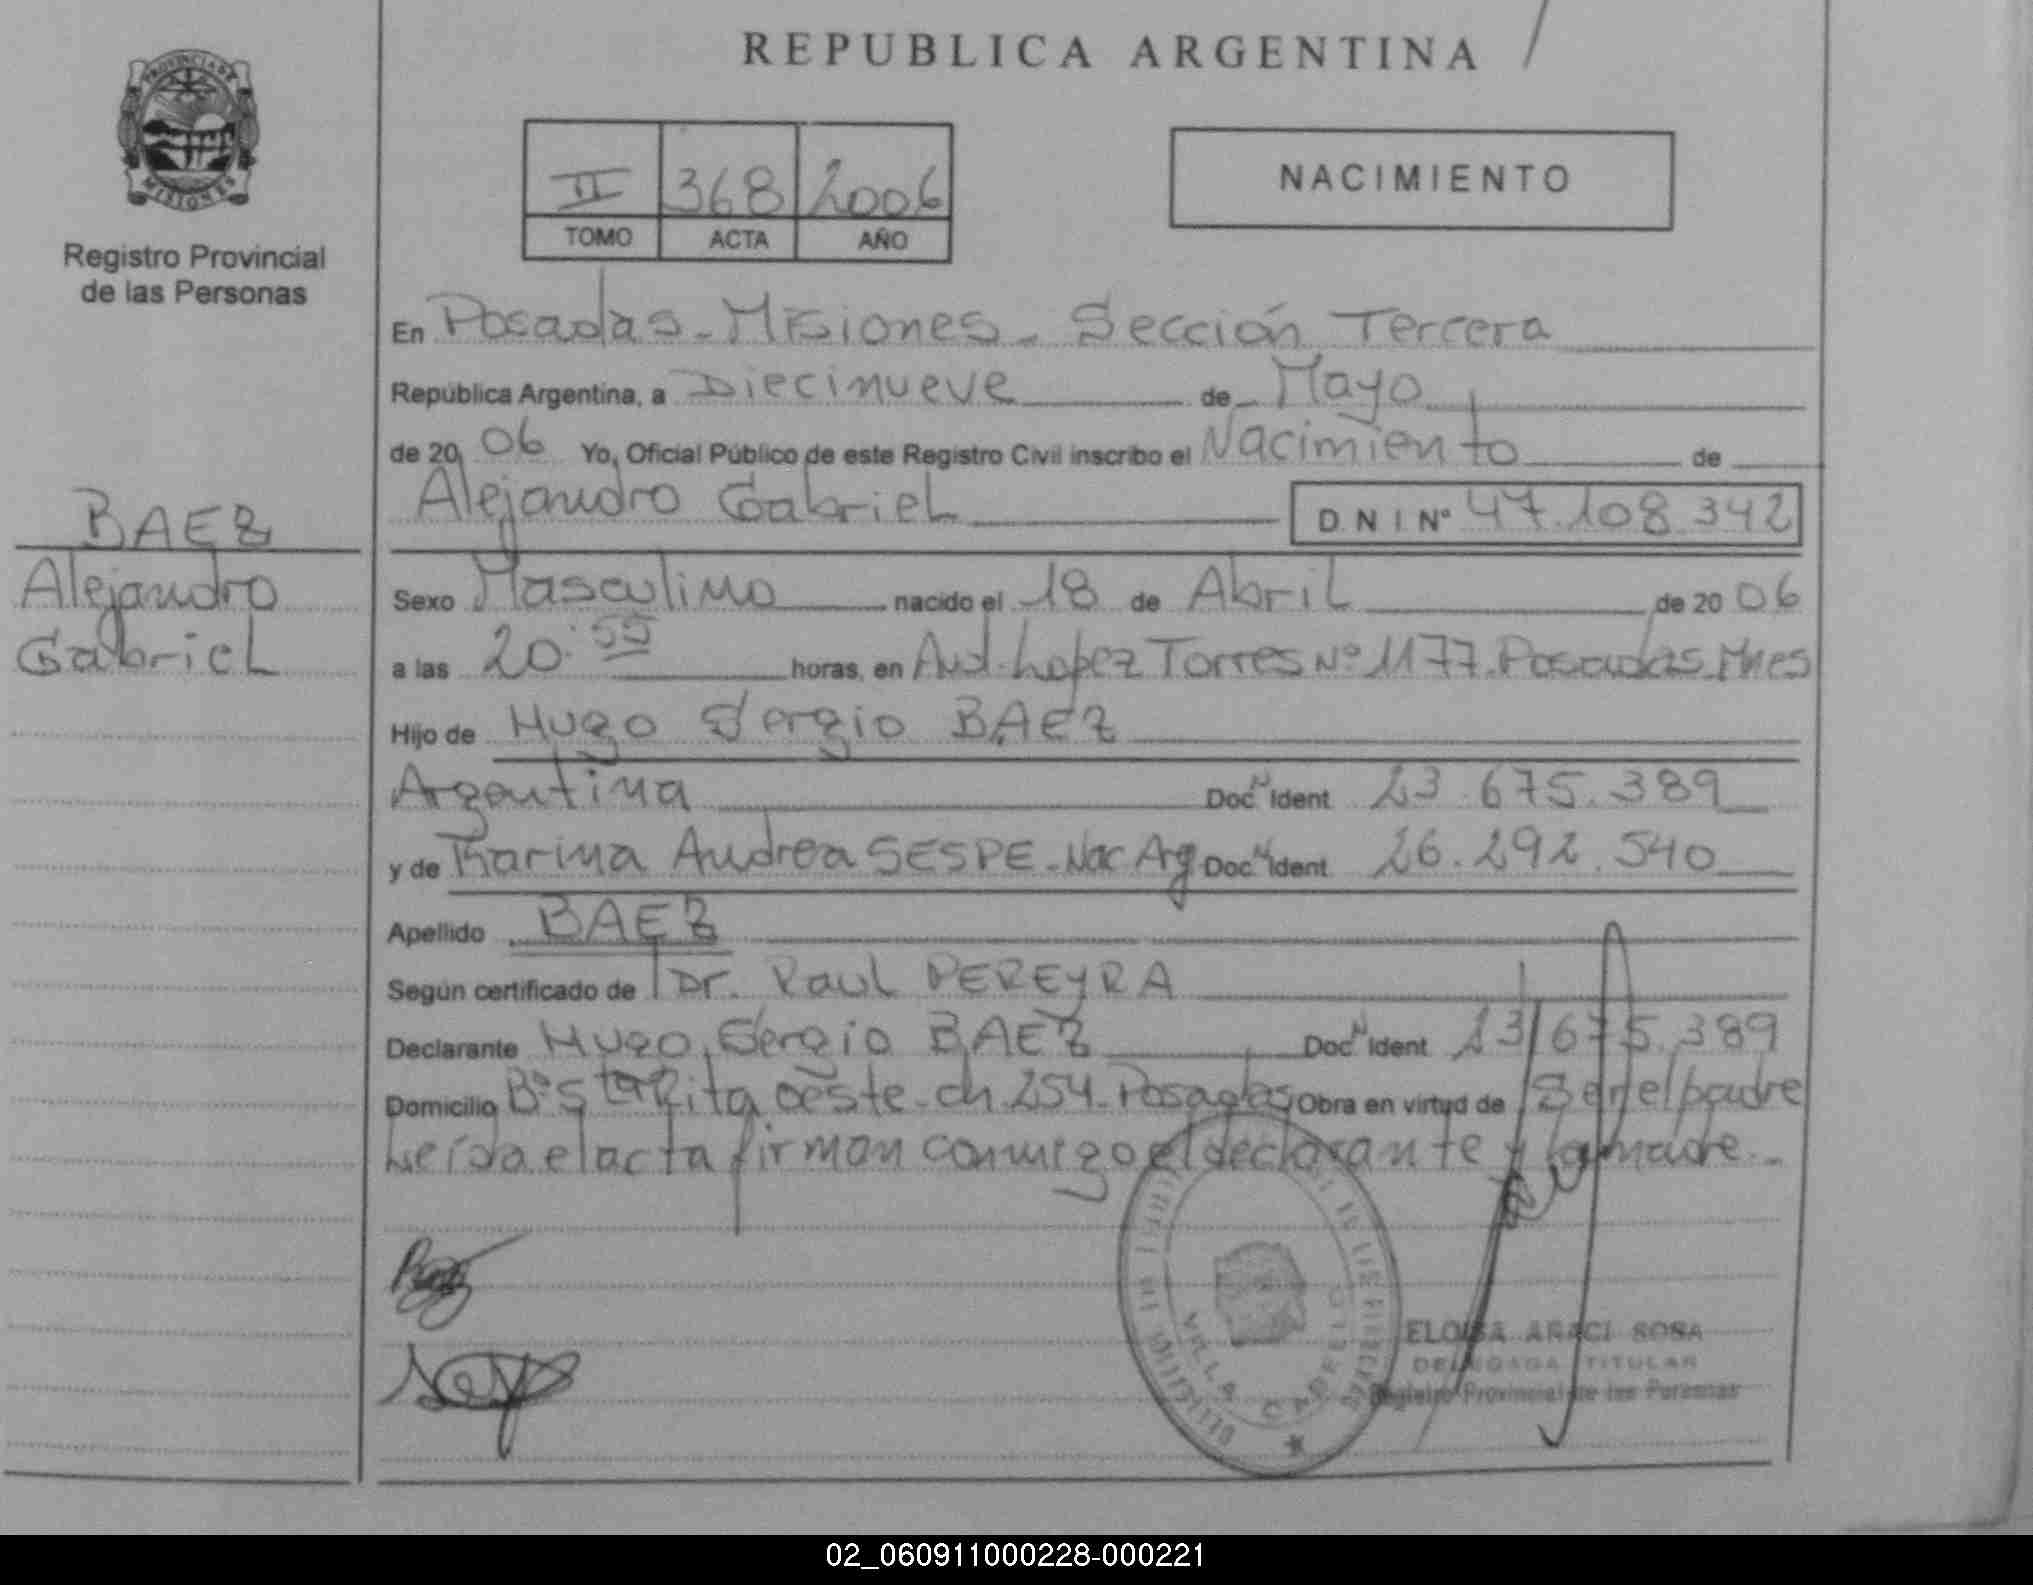 REPUBLICA ARGENTINA
PROVINCIA DE
MISIONES
Registro Provincial
de las Personas
II 368 2006
TOMO ACTA AÑO
NACIMIENTO
En Posadas - Misiones - Sección Tercera
República Argentina, a Diecinueve de Mayo
de 20 06 Yo, Oficial Público de este Registro Civil inscribo el Nacimiento de
Alejandro Gabriel D N I Nº 47.108.342
BAEZ
Alejandro
Gabriel
Sexo Masculino nacido el 18 de Abril de 20 06
a las 20:55 horas, en Avd. Lopez Torres Nº 1177. Posadas. Mnes
Hijo de Hugo Sergio BAEZ
Argentina Doc N Ident 23.675.389
y de Karina Andrea SESPE - Nac Ag Doc N Ident 26.292.540
Apellido BAEZ
Según certificado de Dr. Raul PEREYRA
Declarante Hugo Sergio BAEZ Doc N Ident 23.675.389
Domicilio Bº Sta Rita oeste - ch. 254 - Posadas Obra en virtud de Ser el padre
Leída el acta firman conmigo el declarante y la madre.-
VILLA CABELLO
ELOISA ARACI SOSA
DELEGADA TITULAR
Registro Provincial de las Personas
02_060911000228-000221